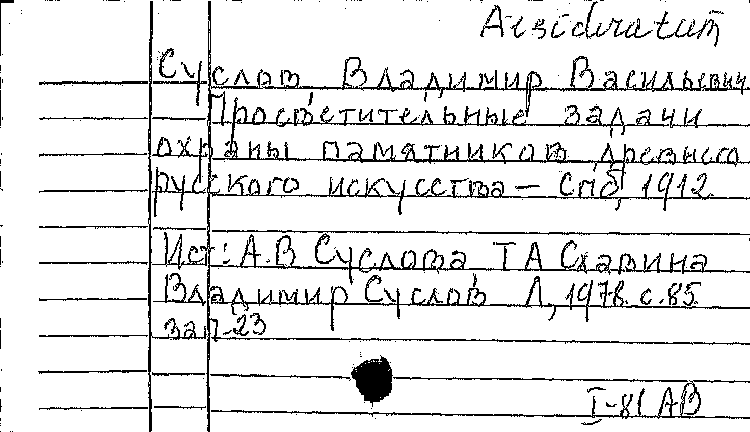 Desideratum
Суслов, Владимир Васильевич
Просветительные задачи
охраны памятников древнего
русского искусства — Спб, 1912.
Ист: А.В Суслова, Т А Славина
Владимир Суслов Л, 1978. с.85
зап-23
I-81 АВ